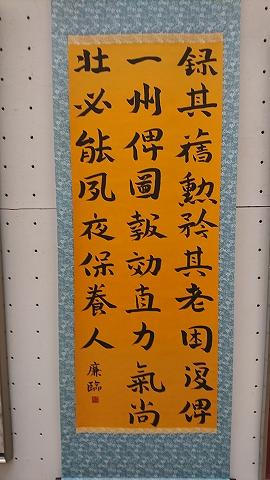 録其舊勲矜其老困復俾
一州俾圖報効直力氣尚
壮必能夙夜保養人
廉臨